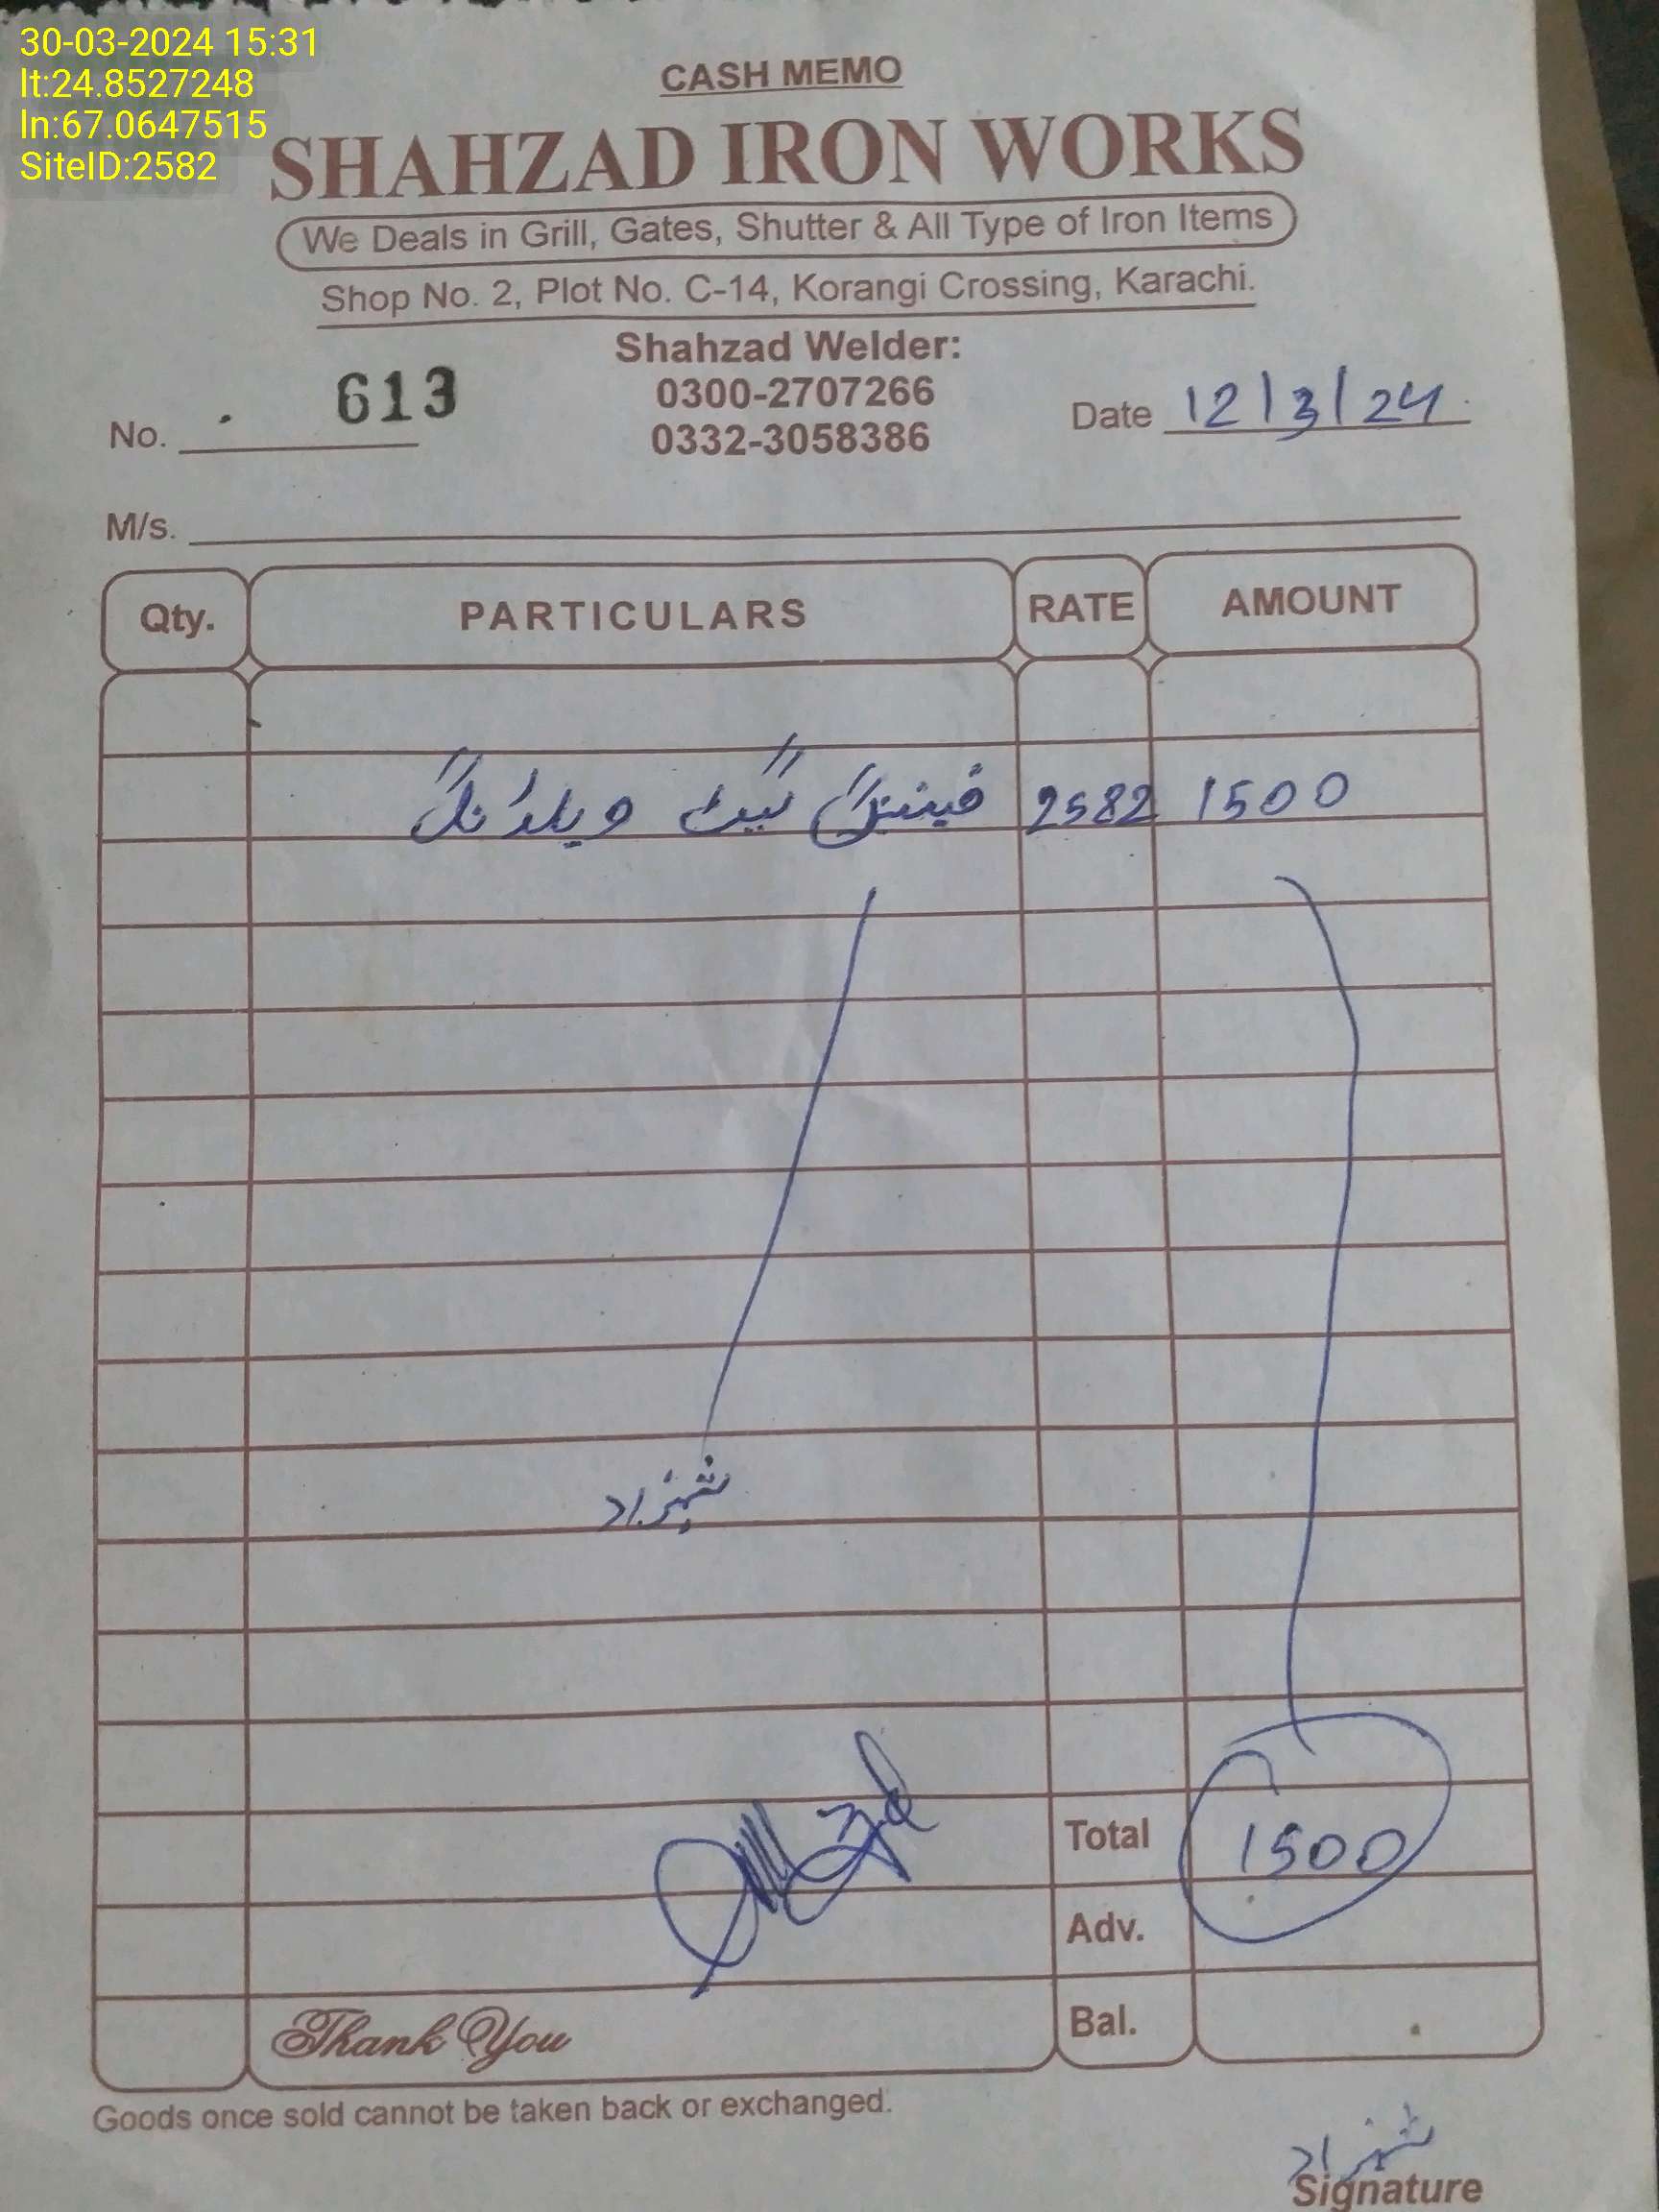 30-03-2024 15:31
lt:24.8527248
ln:67.0647515
SiteID:2582
CASH MEMO
SHAHZAD IRON WORKS
We Deals in Grill, Gates, Shutter & All Type of Iron Items
Shop No. 2, Plot No. C-14, Korangi Crossing, Karachi.
Shahzad Welder:
0300-2707266
0332-3058386
No. 613
Date 12/3/24
M/s.
Qty. PARTICULARS RATE AMOUNT
فینسنگ گیٹ ویلڈنگ 2582 1500
شہزاد
Total 1500
Adv.
Thank You Bal.
Goods once sold cannot be taken back or exchanged.
شہزاد
Signature